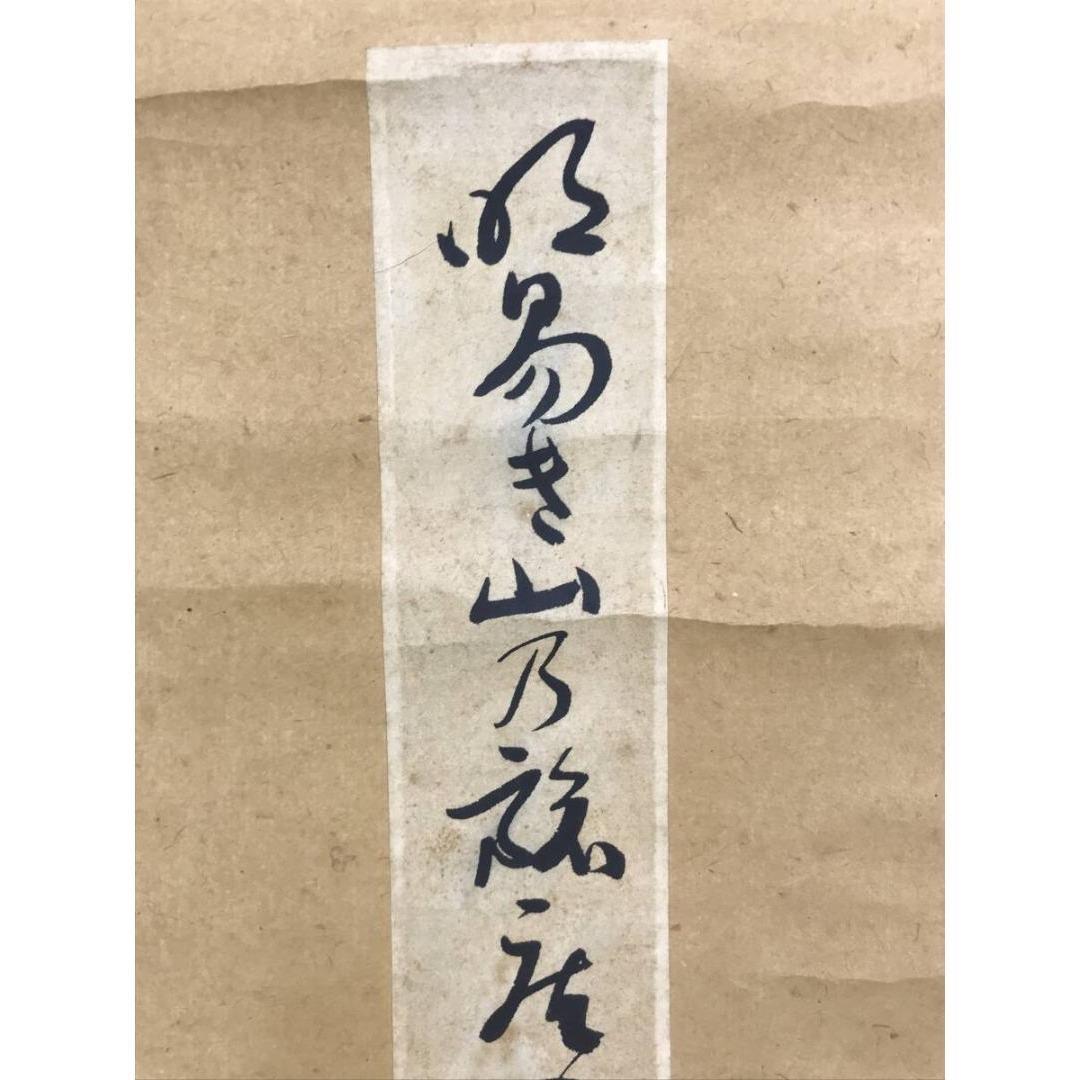 明易き山乃旅店